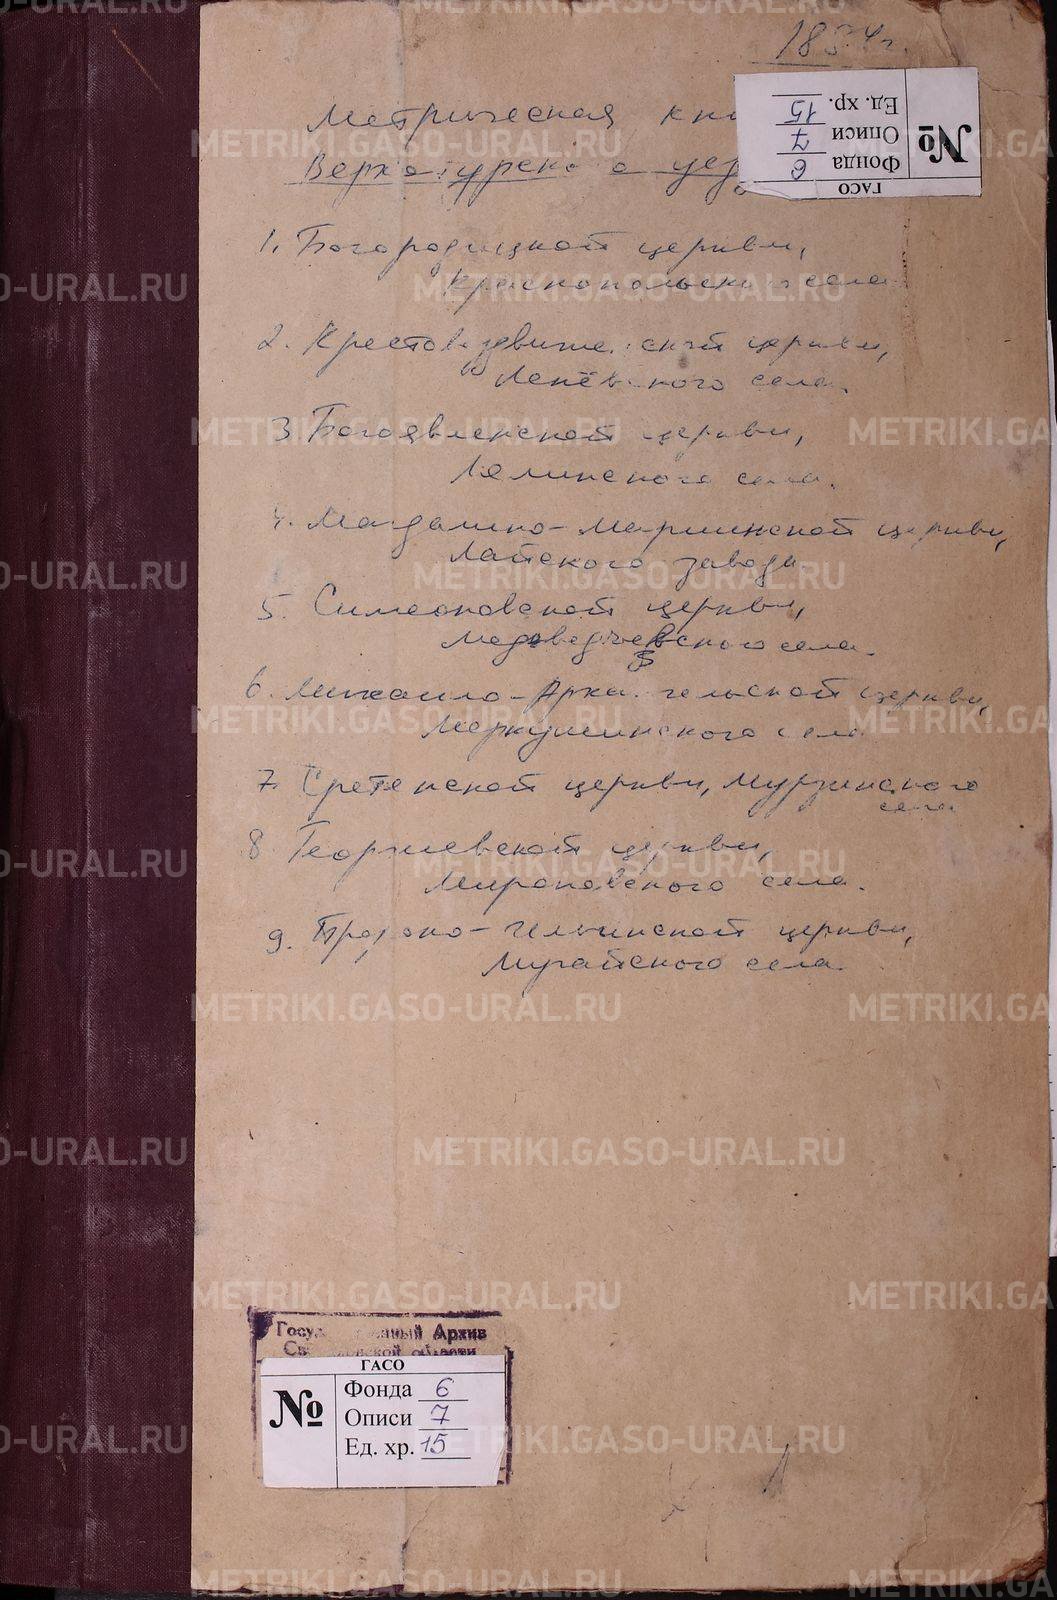 Метрическая кни
Верхотурского уез
1. Богородицкой церкви,
Краснопольского села
2. Крестовоздвиженской церкви,
Ленёвского села.
3 Богоявленской церкви,
Лялинского села.
4. Магдалино-Мариинской церкви,
Лайского завода.
5. Симеоновской церкви,
Медведевского села.
6. Михаило-Архангельской церкви,
Меркушинского села
7. Сретенской церкви, Мурзинского
села
8. Георгиевской церкви,
Мироновского села.
9. Пророко-Ильинской церкви,
Мугайского села.
ГАСО
№
Фонда 6
Описи 7
Ед. хр. 15
Государственный Архив
Свердловской области
ГАСО
№
Фонда 6
Описи 7
Ед. хр. 15
METRIKI.GASO-URAL.RU